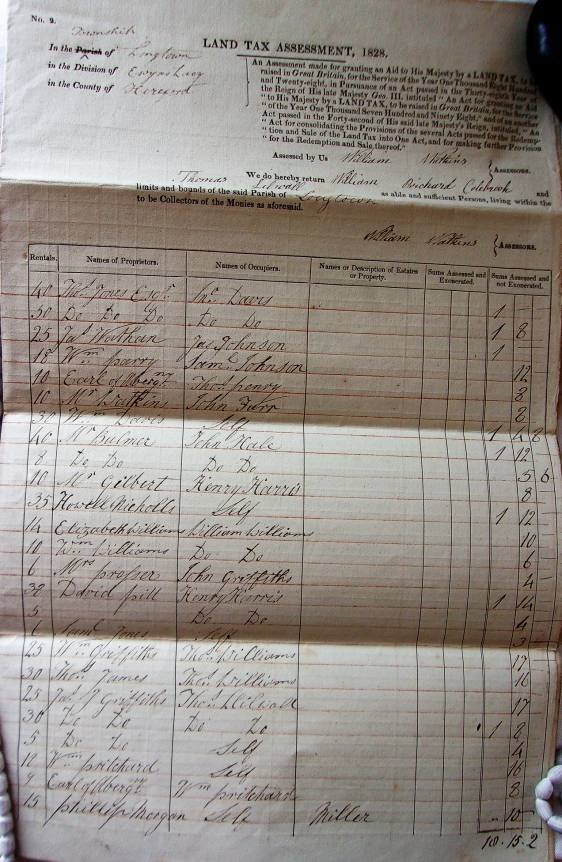 No. 9.
LAND TAX ASSESSMENT, 1828.
Township
In the Parish of Longtown
in the Division of Ewyas Lacy
in the County of Hereford
An Assessment made for granting an Aid to His Majesty by a LAND TAX, to be
raised in Great Britain, for the Service of the Year One Thousand Eight Hundred
and Twenty-eight, in Pursuance of an Act passed in the Thirty-eighth
the Reign of His late Majesty Geo. III. intituled "An Act for granting an Aid
"to His Majesty by a LAND TAX, to be raised in Great Britain, for the Service
"of the Year One Thousand Seven Hundred and Ninety Eight," and of another
Act passed in the Forty-second of His said late Majesty's Reign, intituled, "An
"Act for consolidating the Provisions of the several Acts passed for the Redemp-
"tion and Sale of the Land Tax into One Act, and for making further Provision
"for the Redemption and Sale thereof."
Assessed by Us William Watkins ASSESSORS.
We do hereby return William Prichard Colebrook and
Thomas Lilwall as able and sufficient Persons, living within the
limits and bounds of the said Parish of Longtown
to be Collectors of the Monies as aforesaid.
William Watkins ASSESSORS.
Rentals. Names of Proprietors. Names of Occupiers. Names or Description of Estates or Property. Sums Assessed and Exonerated. Sums Assessed and not Exonerated.
40 Thos. Jones Esqr. Jno. Davis 1 -
30 Do Do Do Do Do 1 8
25 Jas. Wathan Jas. Johnson 1
18 Wm. Parry Saml. Johnson 12
10 Earl of Abergny Thos. Penry 8
10 Mr. Watkins John Farr 8
30 Wm. Davis Self 1 4 8
40 Mr. Bulmer John Hale 1 12
8 Do Do Do Do 5 6
10 Mr. Gilbert Henry Harris 8
35 Howell Nicholls Self 1 12
14 Elizabeth Williams William Williams 10
10 Wm. Williams Do Do 6
6 Mrs. prosser John Griffiths 4
38 David pill Henry Harris 1 14
5 Do Do 4
6 Saml. Jones Self 3
25 Wm. Griffiths Thos. Williams 17
30 Thos. James Thos. Williams 16
25 Jas. J Griffiths Thos. Lilwall 17
30 Do Do Do Do 1 8
5 Do Do Self 4
10 Wm. pritchard Self 16
9 Earl of Abergny Wm. pritchard 8
15 phillip Morgan Self Miller 10
18 . 15 . 2